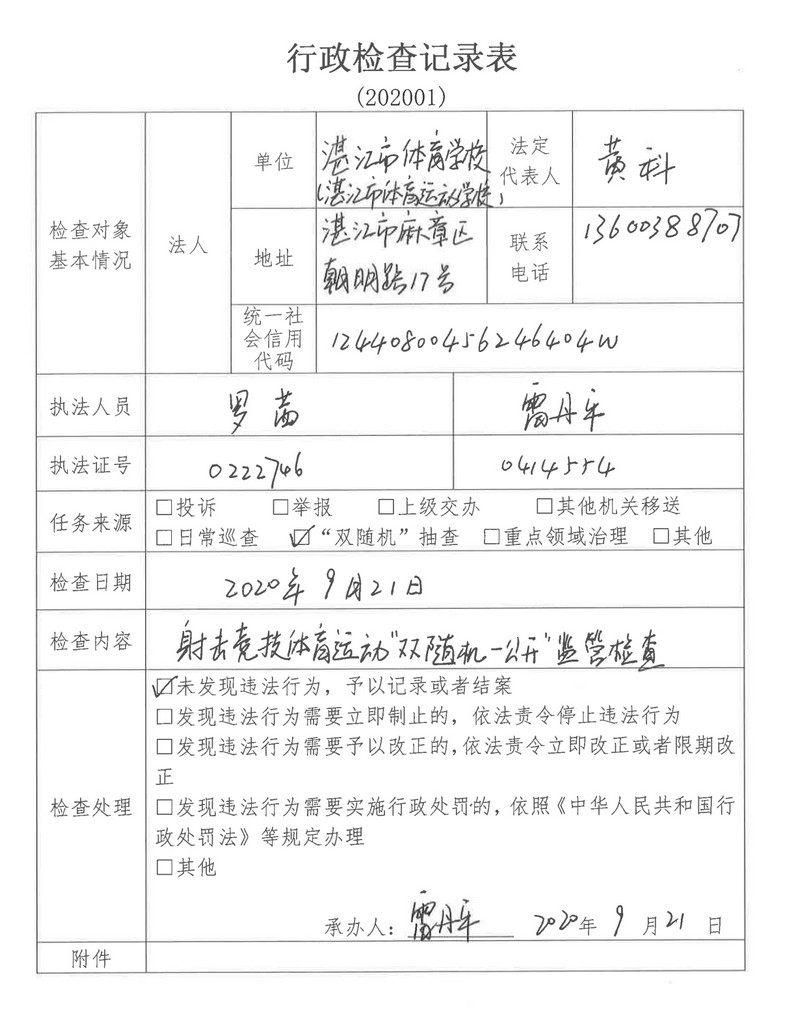 行政检查记录表
(202001)
检查对象
基本情况
法人
单位
湛江市体育学校
(湛江市体育运动学校)
法定
代表人
黄科
地址
湛江市麻章区
朝明路17号
联系
电话
13600388707
统一社
会信用
代码
12440800456246404W
执法人员
罗茜
雷丹平
执法证号
0222746
0414554
任务来源
□投诉 □举报 □上级交办 □其他机关移送
□日常巡查 ☑“双随机”抽查 □重点领域治理 □其他
检查日期
2020年9月21日
检查内容
射击竞技体育运动“双随机一公开”监管检查
检查处理
☑未发现违法行为，予以记录或者结案
□发现违法行为需要立即制止的，依法责令停止违法行为
□发现违法行为需要予以改正的，依法责令立即改正或者限期改
正
□发现违法行为需要实施行政处罚的，依照《中华人民共和国行
政处罚法》等规定办理
□其他
承办人：雷丹平 2020年9月21日
附件